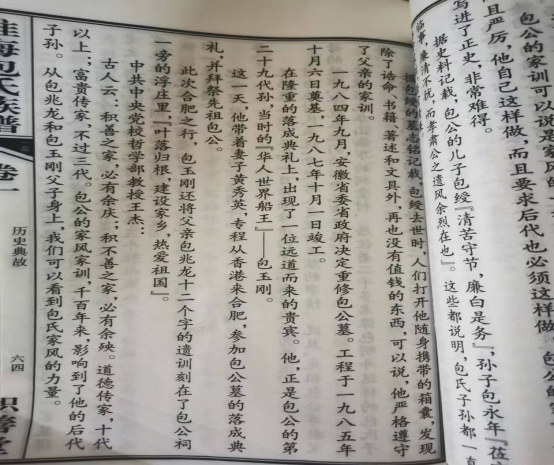 包公的家训可以
且严厉，他自己这样做，而且要求后代也必须这样
写进了正史，非常难得。
据史料记载，包公的儿子包绶『清苦守节，廉白是务』，孙子包永年『莅
临事，廉清不扰，而孝肃公之遗风余烈在也』。这些都说明，包氏子孙都
据包绶的墓志铭记载，包绶去世时，人们打开他随身携带的箱囊，发现
除了诰命、书籍、著述和文具外，再也没有值钱的东西，可以说，他严格遵守
了父亲的家训。
一九八四年九月，安徽省委省政府决定重修包公墓。工程于一九八五年
十月六日奠基，一九八七年十月一日竣工。
在隆重的落成典礼上，出现了一位远道而来的贵宾。他，正是包公的第
二十九代孙，当时的『华人世界船王』——包玉刚。
这一天，他带着妻子黄秀英，专程从香港来合肥，参加包公墓的落成典
礼，并拜祭先祖包公。
此次合肥之行，包玉刚还将父亲包兆龙十二个字的遗训刻在了包公祠
一旁的浮庄里，『叶落归根，建设家乡，热爱祖国』。
中共中央党校哲学部教授王杰：
古人云：积善之家，必有余庆；积不善之家，必有余殃。道德传家，十代
以上；富贵传家，不过三代。包公的家风家训，千百年来，影响到了他的后代
子孙。从包兆龙和包玉刚父子身上，我们可以看到包氏家风的力量。
淮海包氏族谱
卷一
历史典故
六四